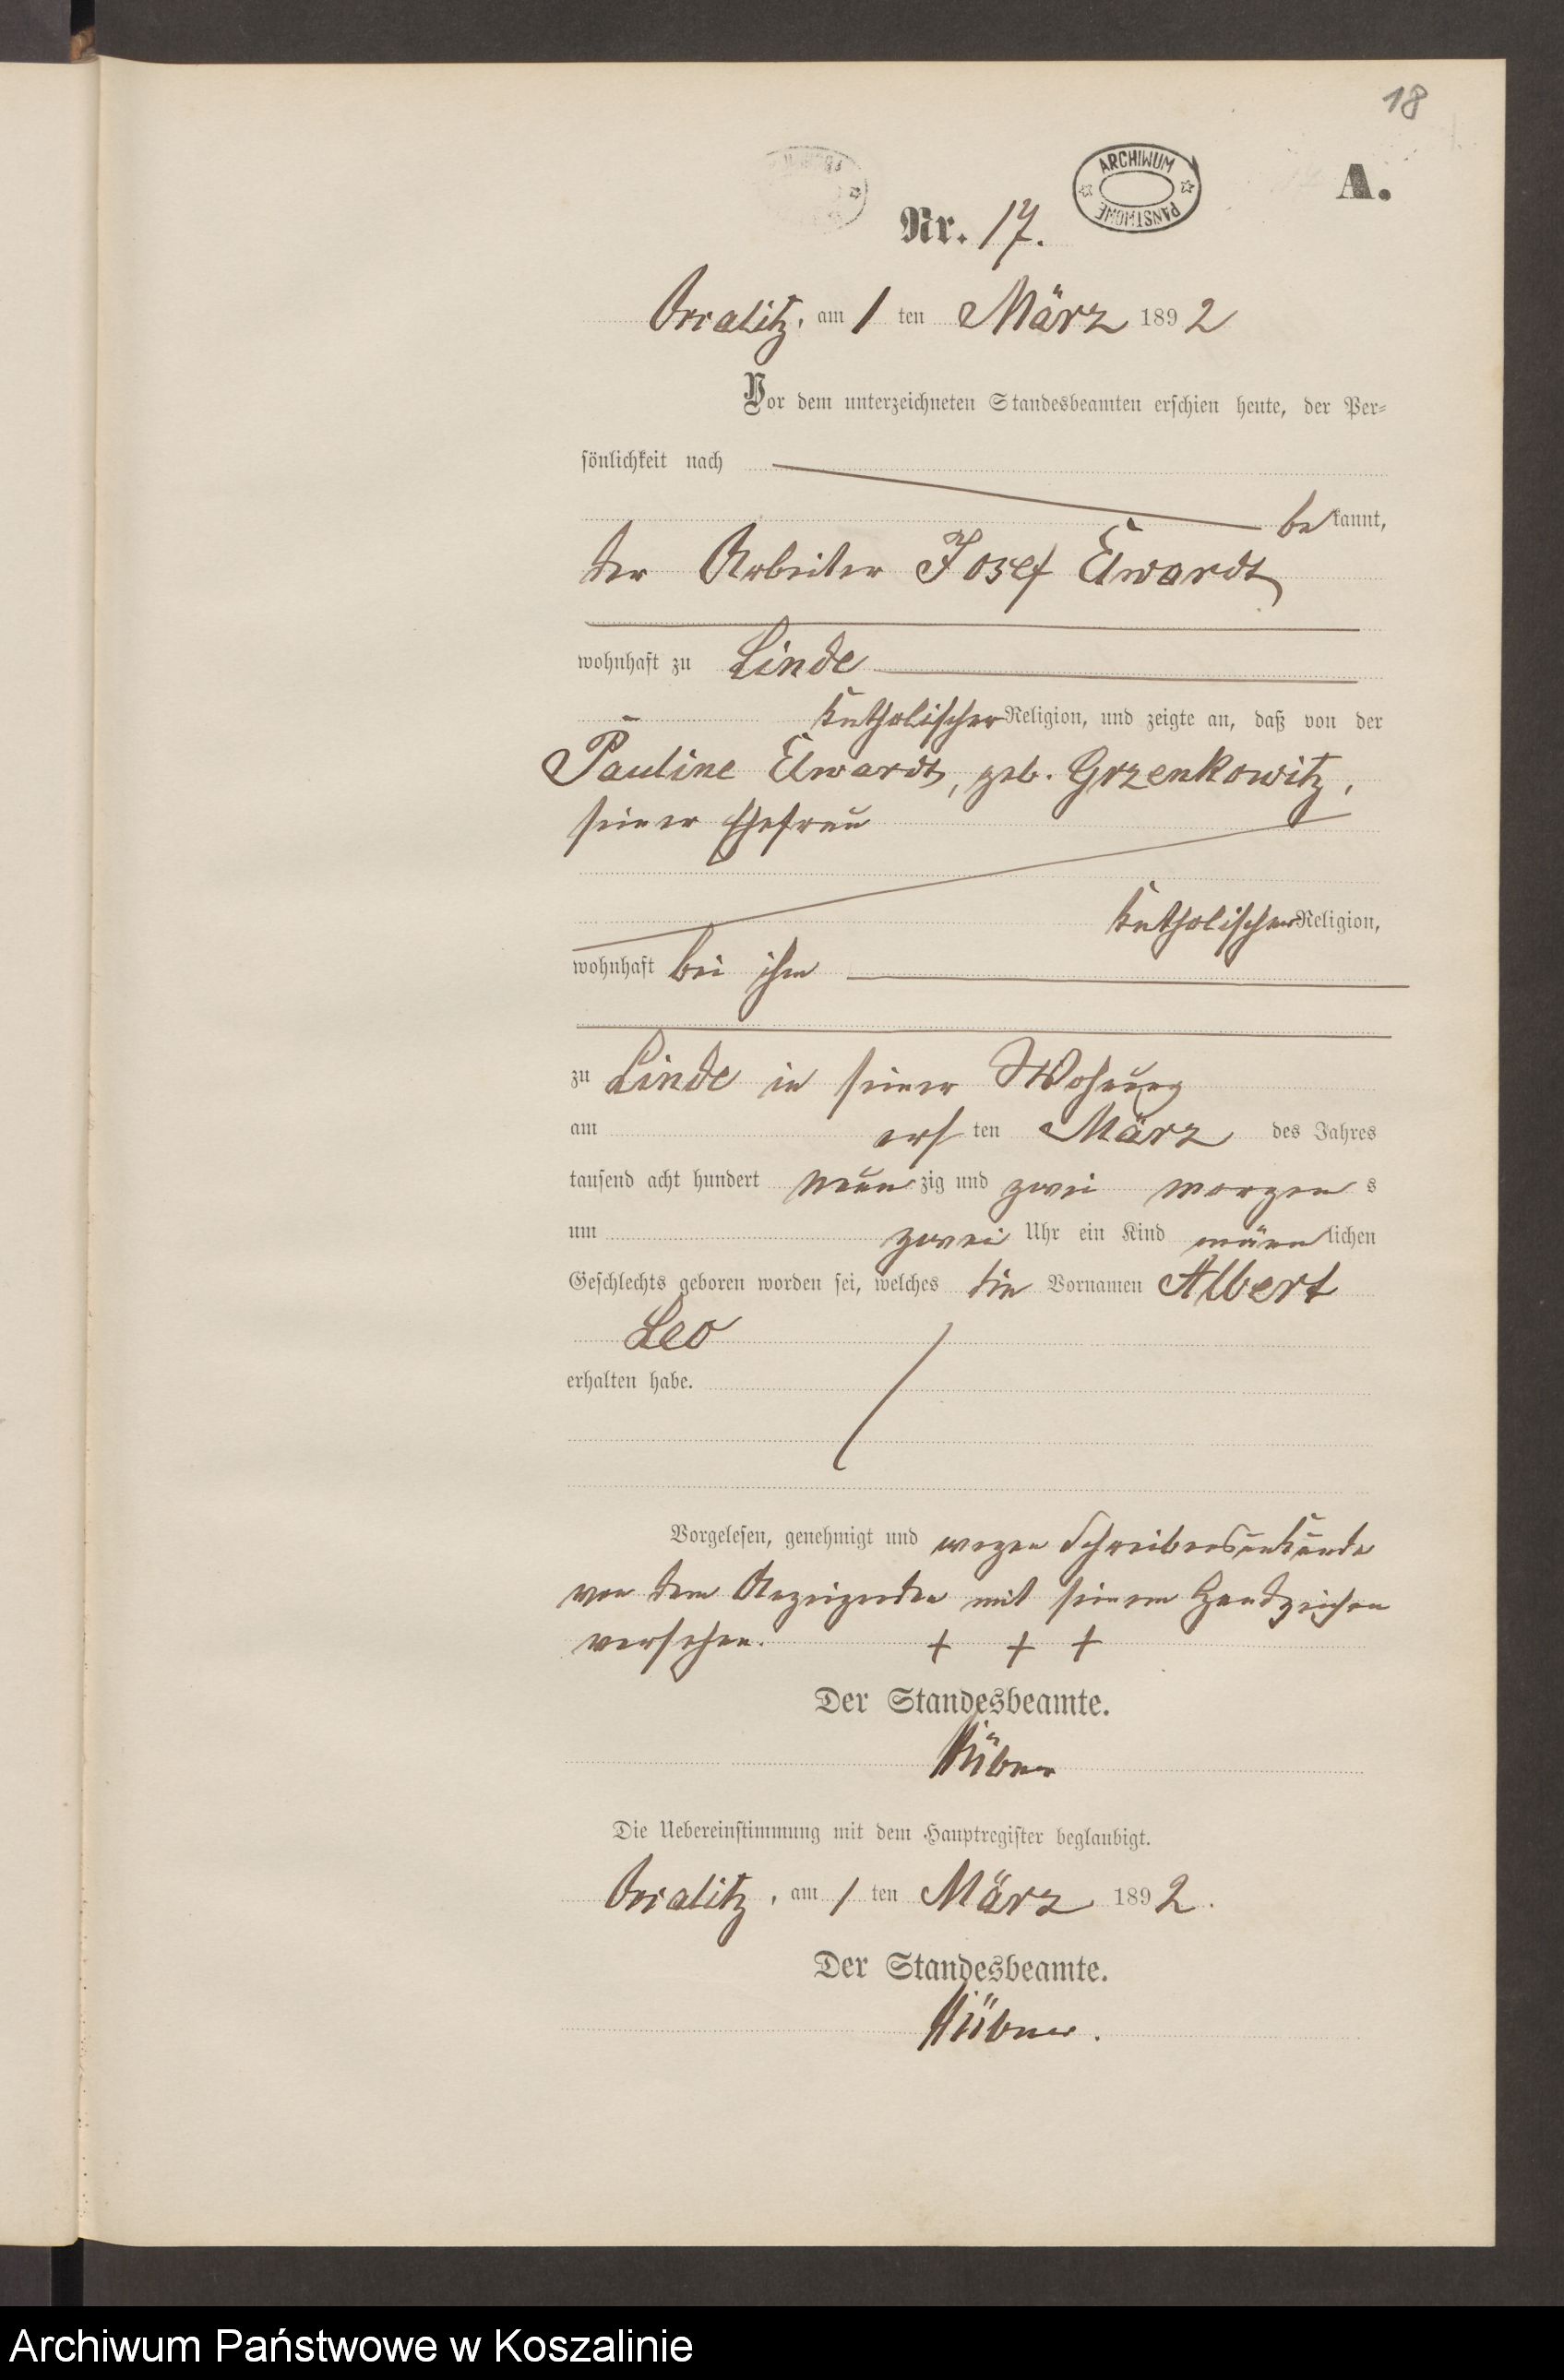 18
ARCHIWUM
PANSTWOWE
A.
Nr. 17.
am 1 ten März 1892
Vor dem unterzeichneten Standesbeamten erschien heute, der Per-
sönlichkeit nach
bekannt,
der Arbeiter Josef Elwardt
wohnhaft zu Linde
katholischer Religion, und zeigte an, daß von der
Pauline Elwardt, geb. Grzenkowitz,
seiner Ehefrau
katholischer Religion,
wohnhaft bei ihm
zu Linde in seiner Wohnung
am ersten März des Jahres
tausend acht hundert neunzig und zwei morgens
um zwei Uhr ein Kind männlichen
Geschlechts geboren worden sei, welches die Vornamen Albert
Leo
erhalten habe.
Vorgelesen, genehmigt und wegen Schreibensunkunde
von dem Anzeigenden mit seinem Handzeichen
versehen. + + +
Der Standesbeamte.
Hübner
Die Uebereinstimmung mit dem Hauptregister beglaubigt.
am 1 ten März 1892.
Der Standesbeamte.
Hübner.
Archiwum Państwowe w Koszalinie